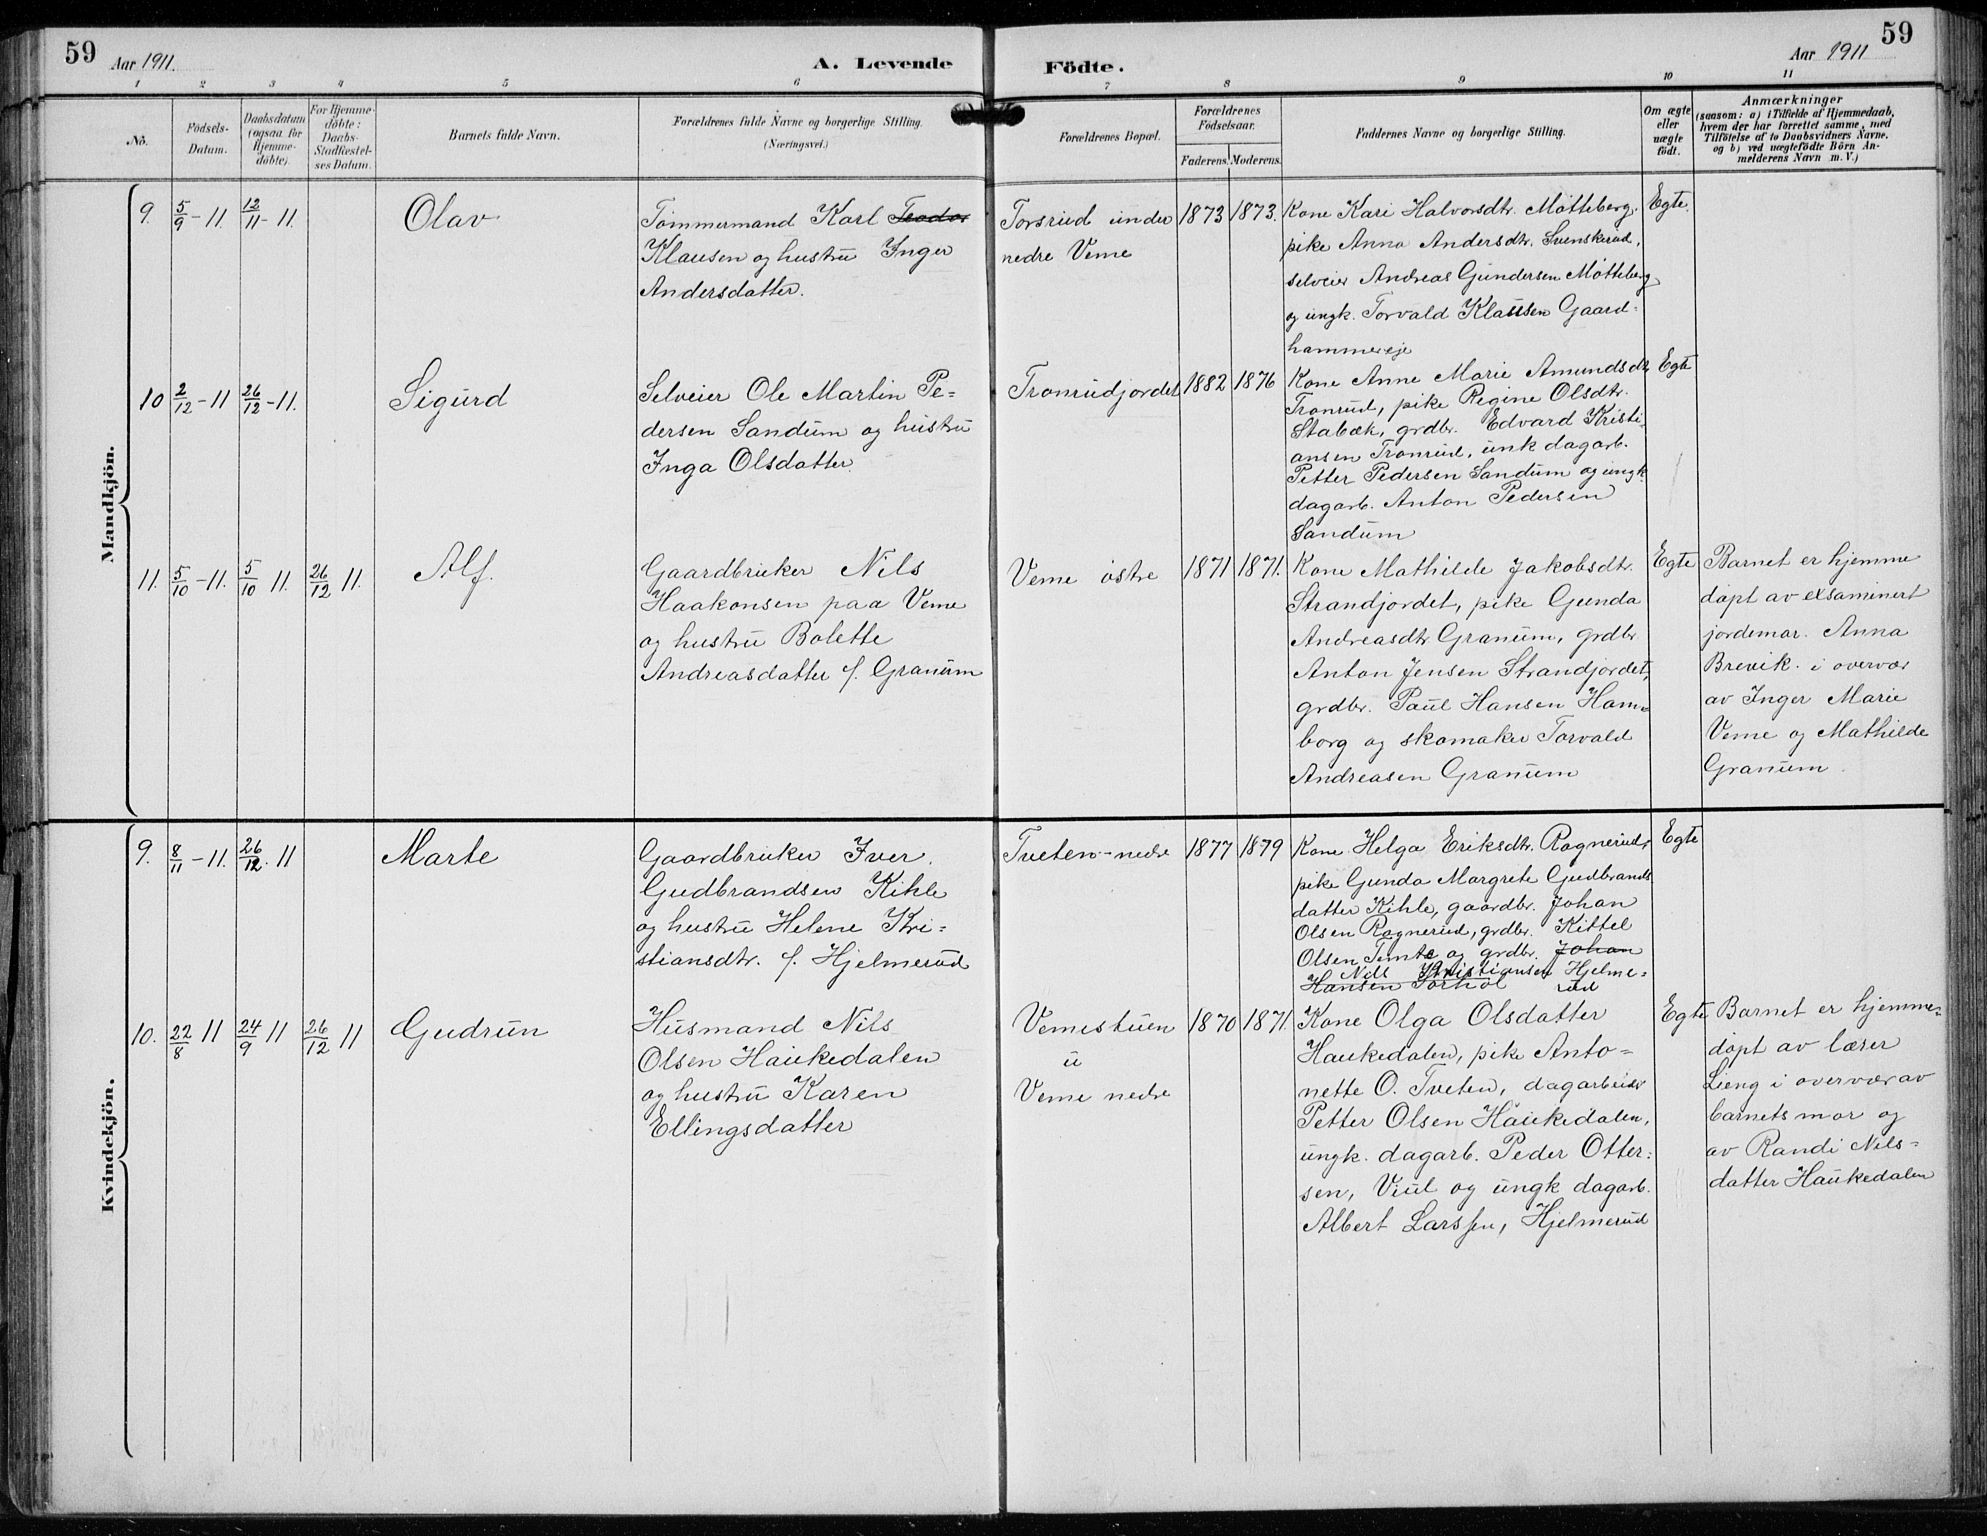 59
Aar 1911.
A. Levende Födte.
Aar 1911
59
1 2 3 4 5 6 7 8 9 10 11
No.
Födsels-
Datum.
Daabsdatum
(ogsaa för
Hjemme-
döbte).
For Hjemme-
döbte:
Daabs-
Stadfæstel-
ses Datum.
Barnets fulde Navn.
Forældrenes fulde Navne og borgerlige Stilling.
(Næringsvei.)
Forældrenes Bopæl.
Forældrenes
Födselsaar.
Faderens. Moderens.
Faddernes Navne og borgerlige Stilling.
Om ægte
eller
uægte
födt.
Anmærkninger
(saasom: a) i Tilfælde af Hjemmedaab,
hvem der har forrettet samme, med
Tilföielse af to Daabsvidners Navne.
og b) ved uægtefödte Börn An-
melderens Navn m. V.)
Mandkjön.
9. 5/9 - 11. 12/11 - 11.
Olav
Tømmermand Karl Teodor
Klausen og hustru Inger
Andersdatter.
Torsrud under
nedre Veme
1873 1873.
Kone Kari Halvorsdtr. Møtteberg,
pike Anna Andersdtr. Svenskerud,
selveier Andreas Gundersen Møtteberg
og ungk. Torvald Klausen Gaard-
hammereje
Egte.
10 2/12 - 11 26/12 - 11.
Sigurd
Selveier Ole Martin Pe-
dersen Sandum og hustru
Inga Olsdatter
Tronrudjordet
1882 1876
Kone Anne Marie Amundsdtr
Tronrud, pike Regine Olsdtr.
Stabæk, grdbr. Edvard Kristi-
ansen Tronrud, unk dagarb.
Petter Pedersen Sandum og ungk.
dagarb. Anton Pedersen
Sandum
Egte
11. 5/10 - 11. 5/10 11. 26/12 11.
Alf.
Gaardbruker Nils
Haakonsen paa Veme
og hustru Bolette
Andreasdatter f. Granum
Veme østre
1871 1871.
Kone Mathilde Jakobsdtr.
Strandjordet, pike Gunda
Andreasdtr Granum, grdbr
Anton Jensen Strandjordet,
grdbr. Paul Hansen Ham-
borg og skomaker Torvald
Andreasen Granum
Egte
Barnet er hjemme
døpt av eksaminert
jordemor. Anna
Brevik. i overvær
av Inger Marie
Veme og Mathilde
Granum.
Kvindekjön.
9. 8/11 - 11. 26/12. 11
Marte
Gaardbruker Iver.
Gudbrandsen Kihle
og hustru Helene Kri-
stiansdtr. f. Hjelmerud
Tveten-nedre
1877 1879
Kone Helga Eriksdtr. Ragnerud,
pike Gunda Margrete Gudbrands
datter Kihle, gaardbr. Johan
Olsen Ragnerud, grdbr. Kittel
Olsen Tomte og grdbr. Johan
Nils Kristiansen Hjelme-
Hansen Sørhol rud
Egte
10. 22/8 11 24/9 11 26/12 11
Gudrun
Husmand Nils
Olsen Haukedalen
og hustru Karen
Ellingsdatter
Vemestuen
u
Veme nedre
1870 1871.
Kone Olga Olsdatter
Haukedalen, pike Anto-
nette O. Tveten, dagarbeider
Petter Olsen Haukedalen,
ungk. dagarb. Peder Otter-
sen, Viul og ungk dagarb.
Albert Larssen, Hjelmerud
Egte
Barnet er hjemme-
døpt av lærer
Lieng i overvær av
barnets mor og
av Randi Nils-
datter Haukedalen